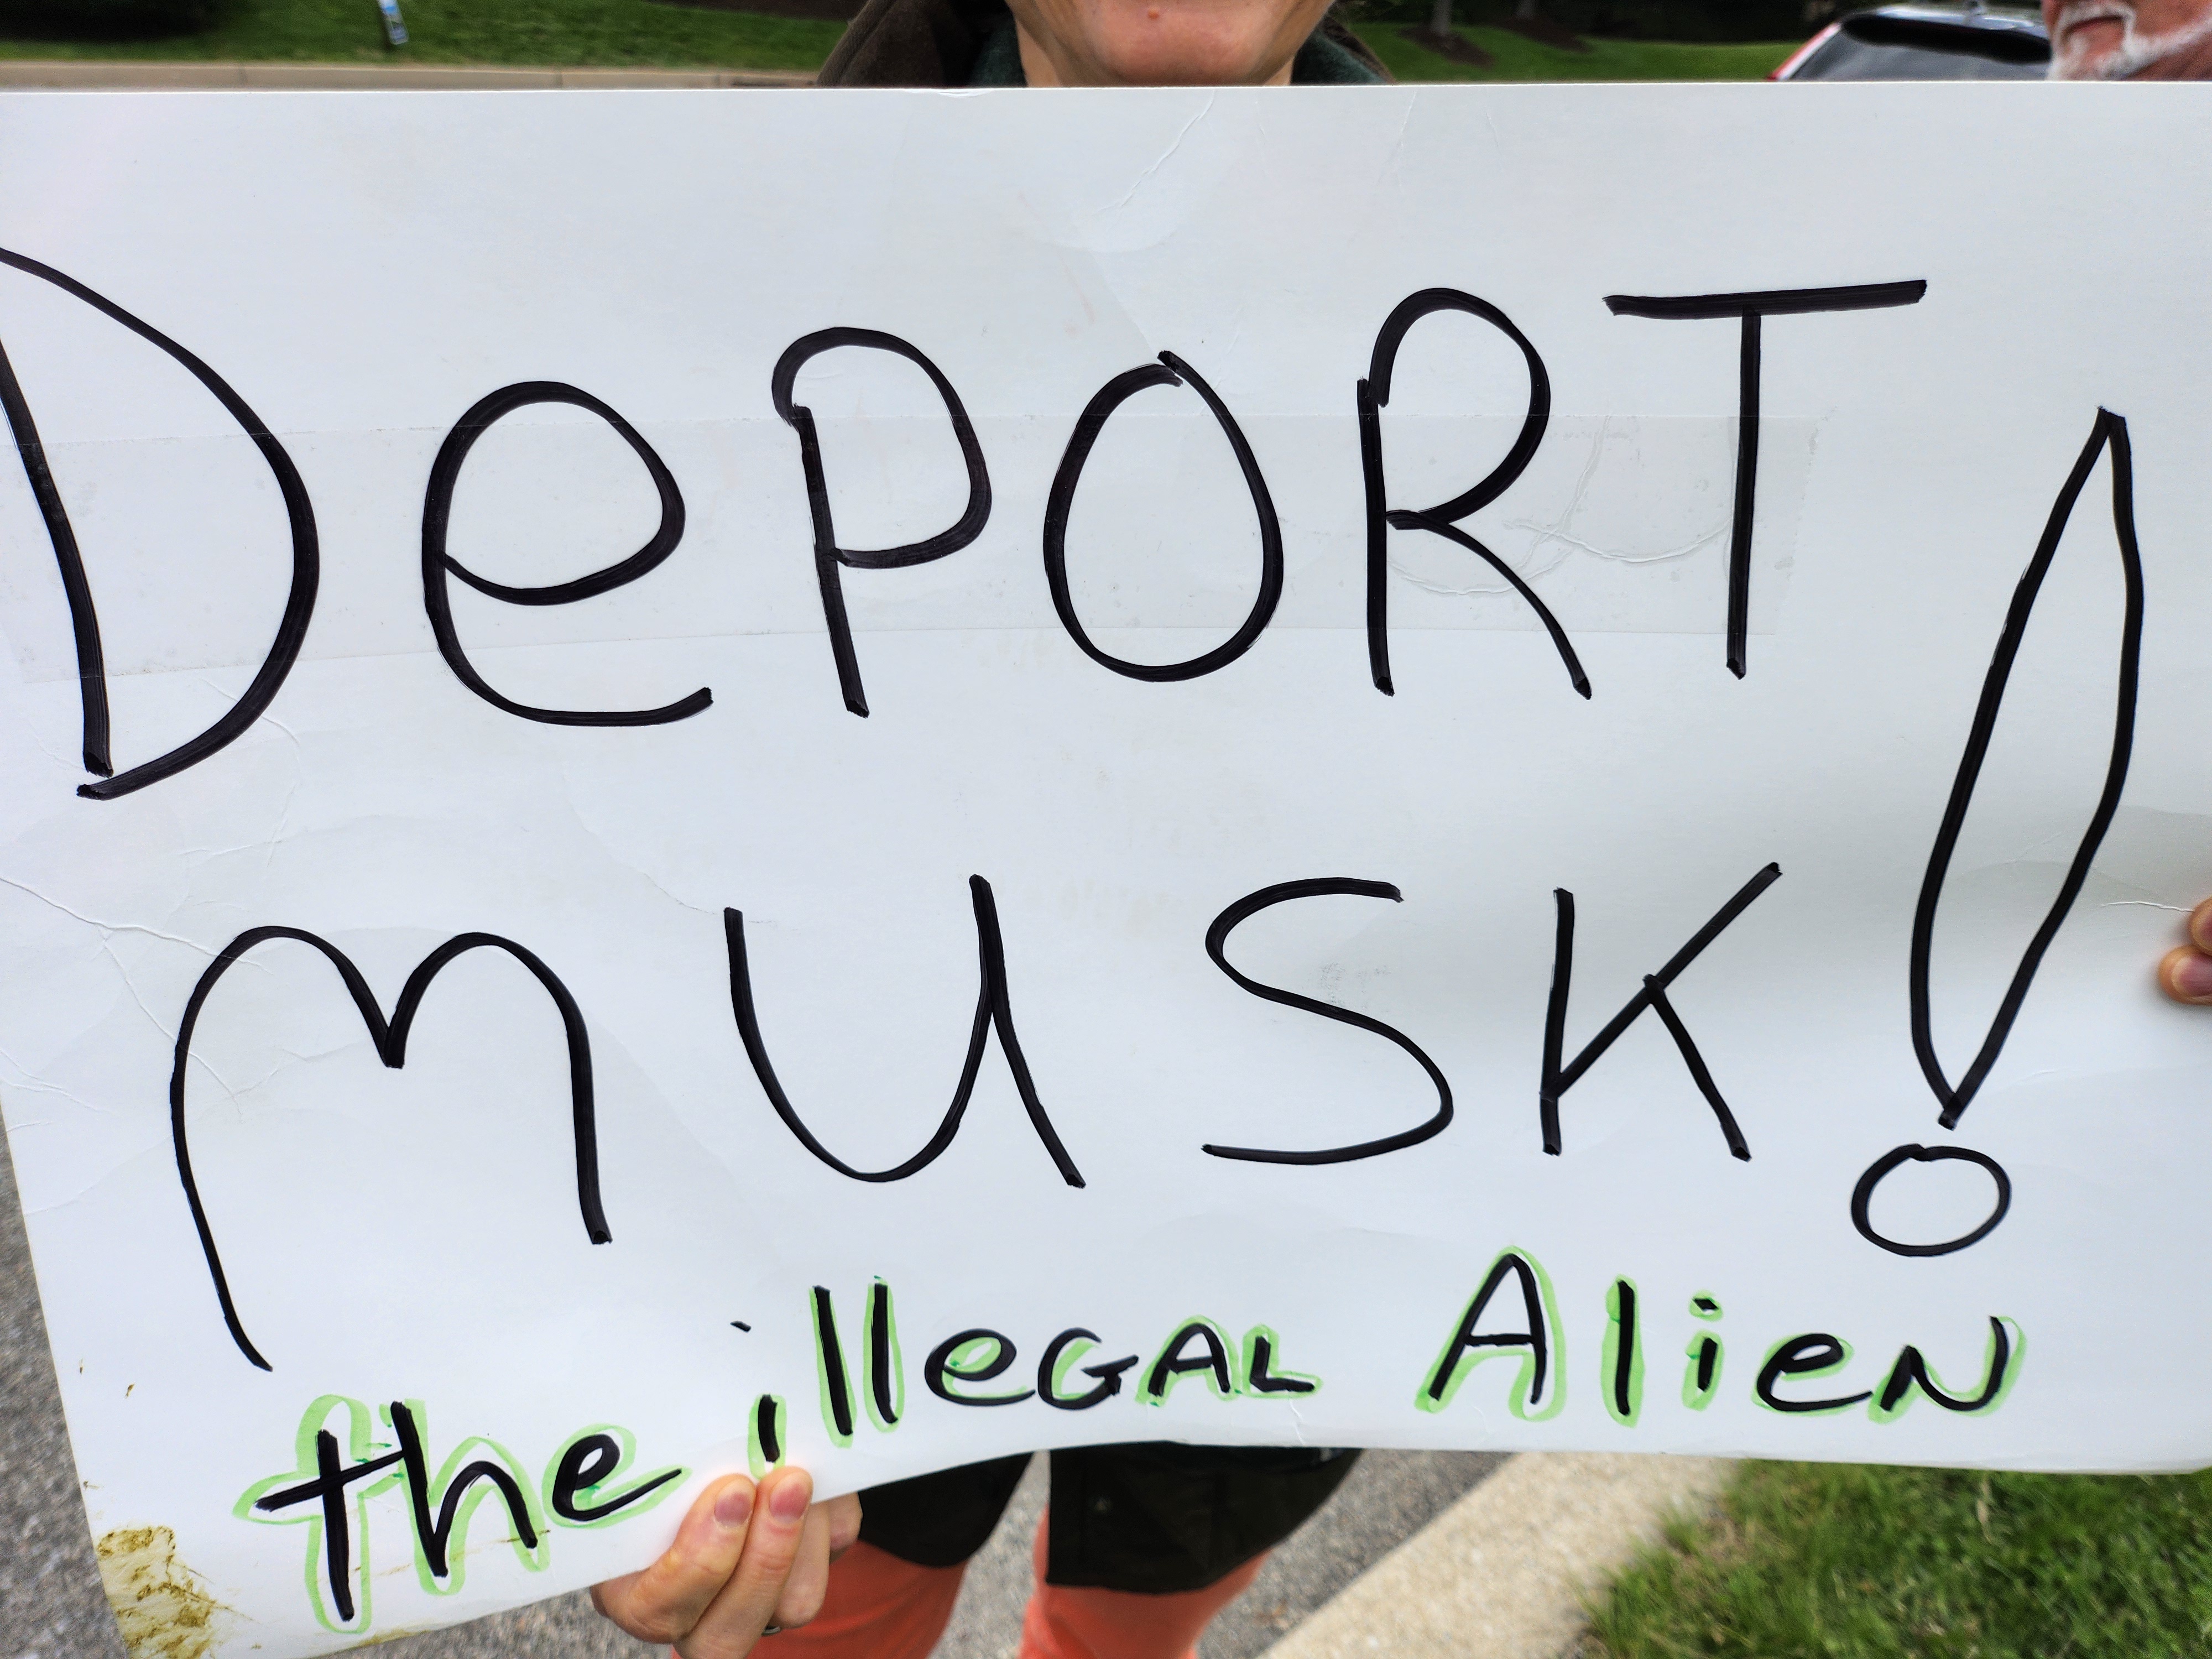 DePORT
MUSK!
the illeGAL AlieN